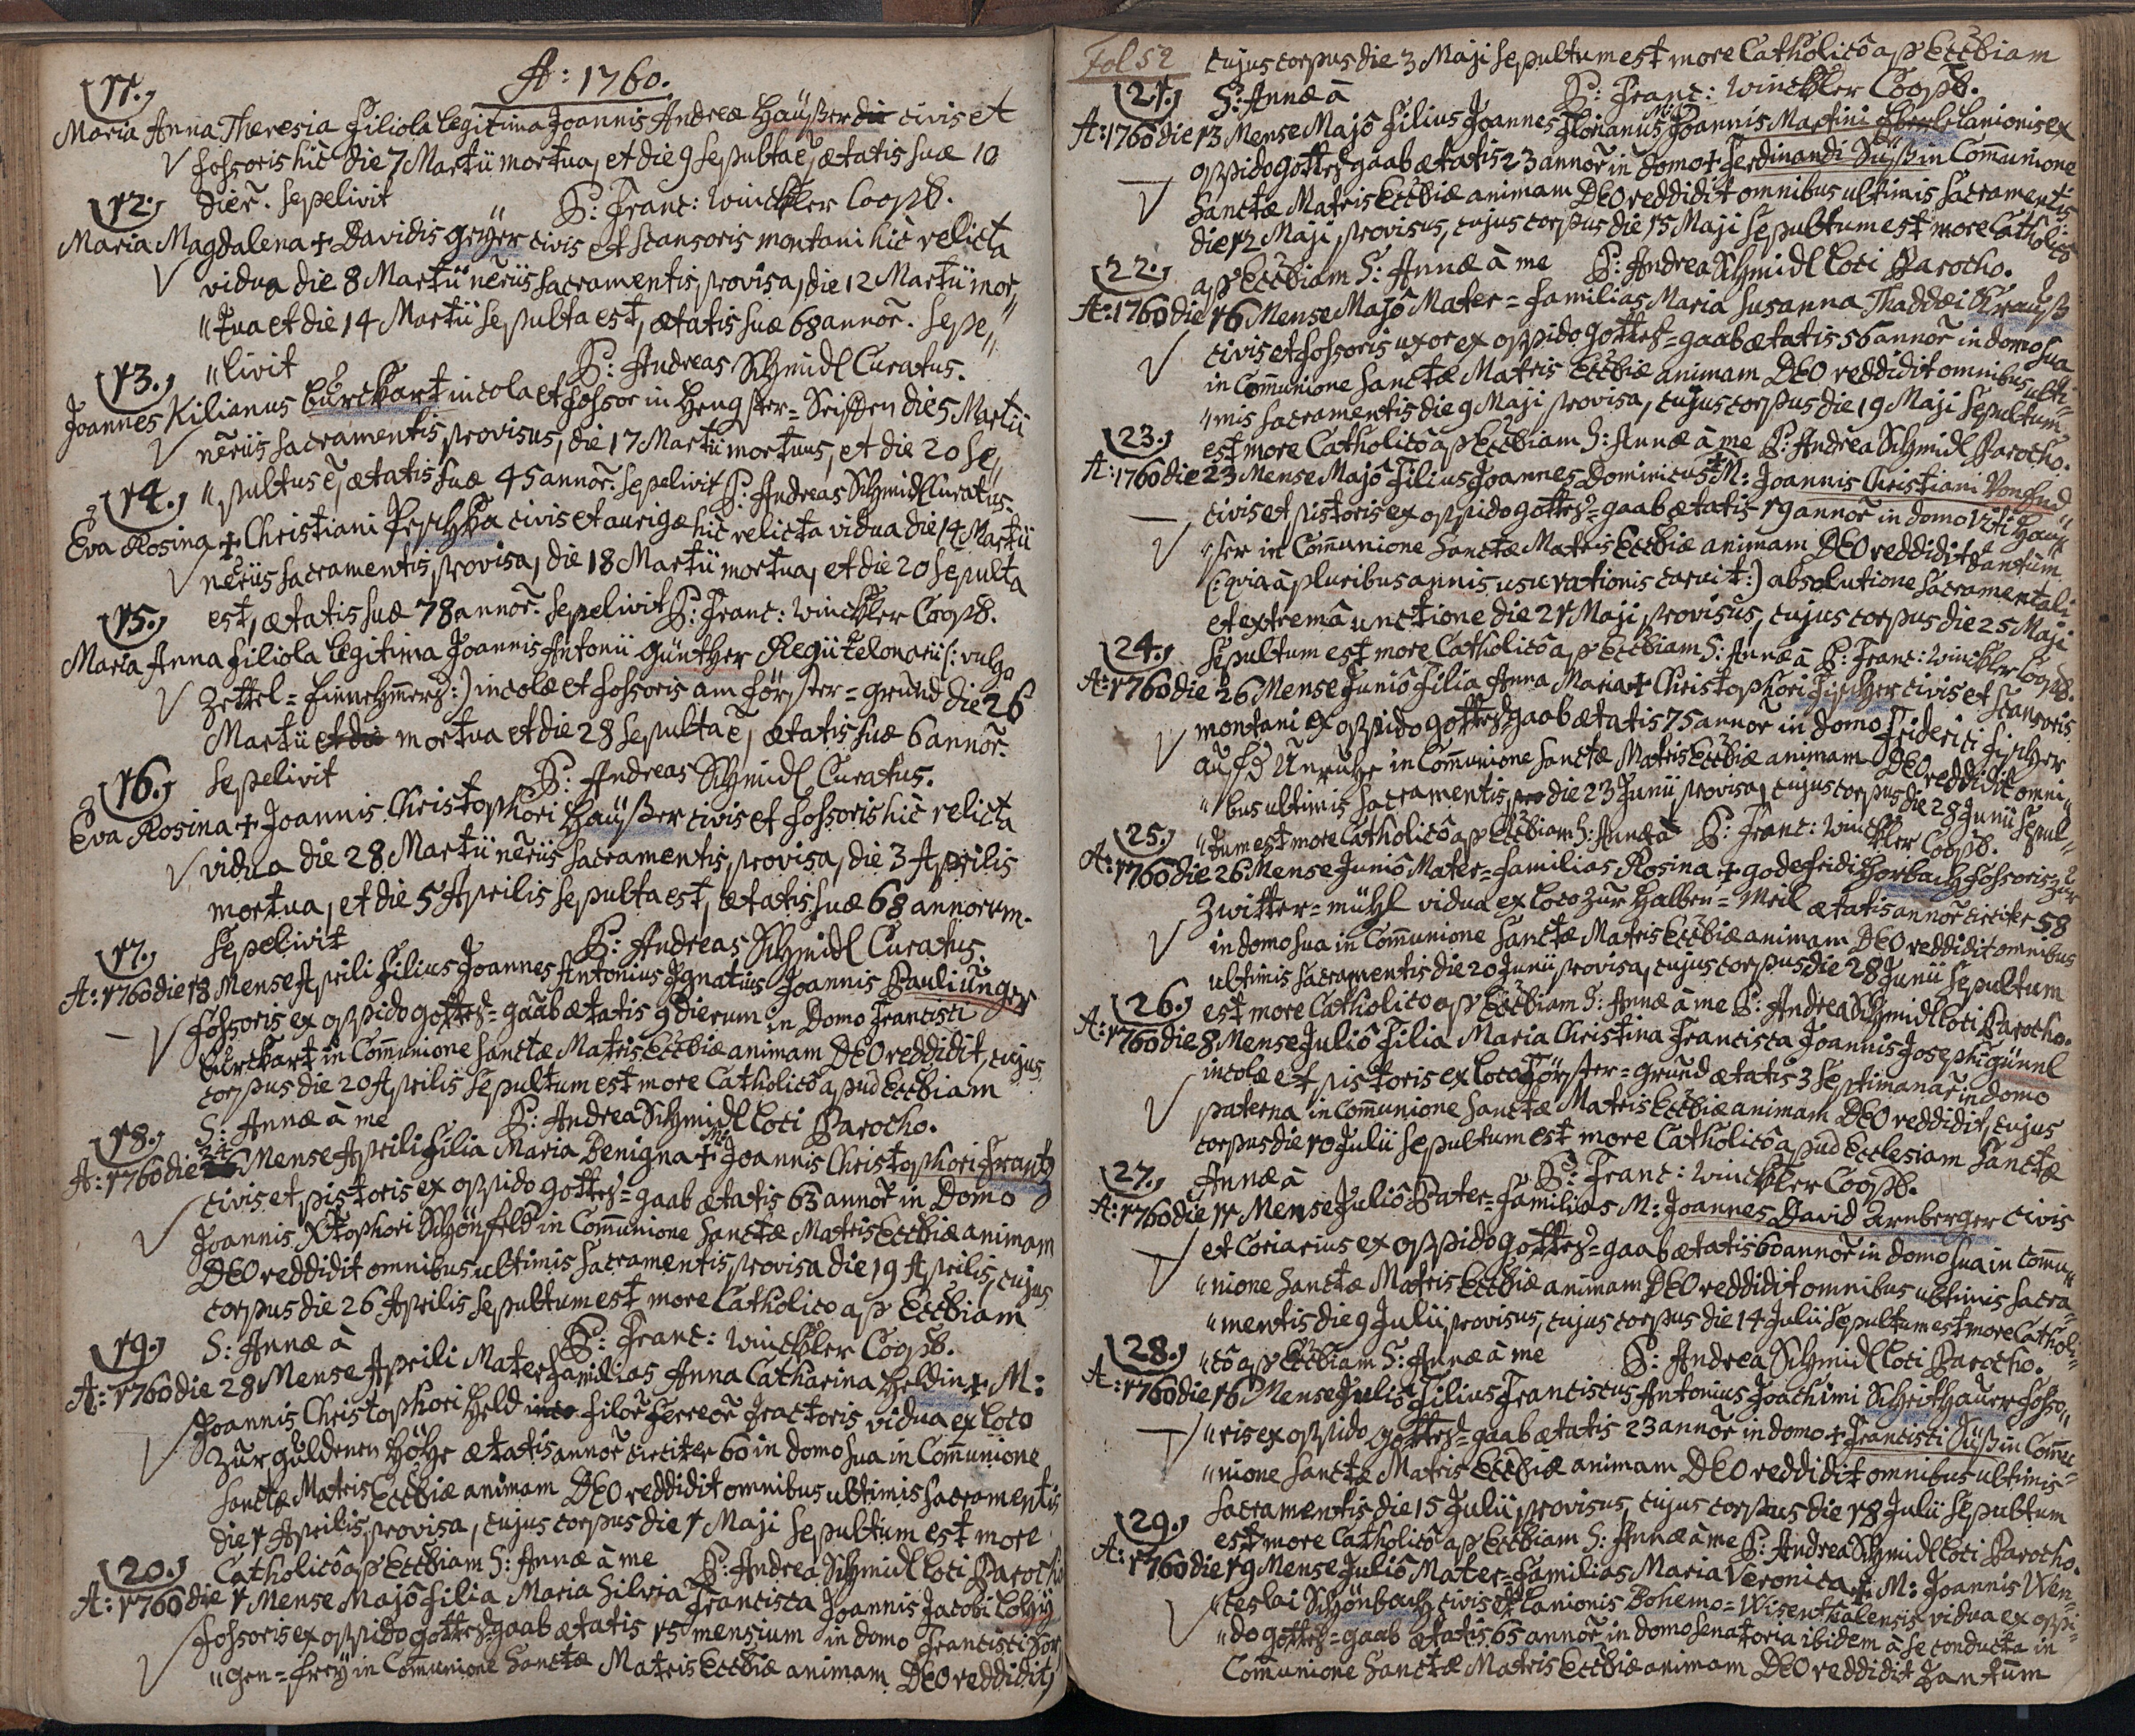 A: 1760.
11.
Maria Anna Theresia Filiola legitima Joannis Andreæ Haüßer civis et
fossoris hic die 7 Martii mortua, et die 9 sepulta ē, ætatis suæ 10
dier̄. sepelivit P: Franc: Winckler Coopꝰ.
12.
Maria Magdalena ✝ Davidis Geÿer civis et scansoris montani hic relicta
vidua die 8 Martii nēriis sacramentis provisa, die 12 Martii mor"
"tua et die 14 Martii sepulta est, ætatis suæ 68 annor̄. sepe"
"livit P: Andreas Schmidl Curatus.
13.
Joannes Kilianus Burckart incola et fossor in Hengster=Seiffen die 5 Martii
nēriis sacramentis provisus, die 17 Martii mortuus, et die 20 se"
"pultus ē, ætatis suæ 45 annor̄. sepelivit P: Andreas Schmidl Curatus.
14.
Eva Rosina ✝ Christiani Peschka civis et aurigæ hic relicta vidua die 14 Martii
nēriis sacramentis provisa, die 18 Martii mortua, et die 20 sepulta
est, ætatis suæ 78 annor̄. sepelivit P: Franc: Winckler Coopꝰ.
15.
Maria Anna filiola legitima Joannis Antonii Günther Regii telonarii (: vulgo
Zettel=Einnehmers :) incolæ et fossoris am Förster=Grund die 26
Martii mortua et die 28 sepulta ē, ætatis suæ 6 annor̄.
sepelivit P: Andreas Schmidl Curatus.
16.
Eva Rosina ✝ Joannis Christophori Haüßer civis et fossoris hic relicta
vidua die 28 Martii nēriis sacramentis provisa, die 3 Aprilis
mortua, et die 5 Aprilis sepulta est, ætatis suæ 68 annorum.
sepelivit P: Andreas Schmidl Curatus.
17.
A: 1760 die 18 Mense Aprili Filius Joannes Antonius Ignatius Joannis Pauli Unger
fossoris ex oppido Gottes=gaab ætatis 9 dierum in Domo Francisci
Burckart in Com̄unione sanctæ Matris Ecclꝰiæ animam DEO reddidit, cujus
corpus die 20 Aprilis sepultum est more Catholicô apud Ecclꝰiam
S: Annæ à me P: Andrea Schmidl loci Parocho.
18.
A: 1760 die 24 Mense Aprili filia Maria Benigna ✝ M: Joannis Christophori Frantz
civis et pistoris ex oppido Gottes=gaab ætatis 63 annor̄ in Domo
Joannis Xtophori Schönfeld in Com̄unione Sanctæ Matris Ecclꝰiæ animam
DEO reddidit omnibus ultimis sacramentis provisa die 19 Aprilis, cujus
corpus die 26 Aprilis sepultum est more Catholico ap Ecclꝰiam
S: Annæ à P: Franc: Winckler Coopꝰ.
19.
A: 1760 die 28 Mense Aprili Mater familias Anna Catharina Heldin ✝ M:
Joannis Christophori Held filor̄ ferreor̄ tractoris vidua ex loco
zur guldenen Höhe ætatis annor̄ circiter 60 in domo sua in Com̄unione
Sanctæ Matris Ecclꝰiæ animam DEO reddidit omnibus ultimis sacramentis
die 1 Aprilis provisa, cujus corpus die 1 Maji sepultum est more
Catholicô ap Ecclꝰiam S: Annæ à me P: Andrea Schmidl loci Parocho
20.
A: 1760 die 1 Mense Majô filia Maria Silvia Francisca Joannis Jacobi
fossoris ex oppido Gottesgaab ætatis 15 mensium in domo Francisci
"gen=freÿ in Com̄unione Sanctæ Matris Ecclꝰiæ animam DEO reddidit,
Fol 52
cujus corpus die 3 Maji sepultum est more Catholicô ap Ecclꝰiam
S: Annæ à P: Franc: Winckler Coopꝰ.
21.
A: 1760 die 13 Mense Majô filius Joannes Florianus Joannis Martini lanionis ex
oppido Gottesgaab ætatis 23 annor̄ in domo ✝ Ferdinandi Süß in Com̄unione
Sanctæ Matris Ecclꝰiæ animam DEO reddidit omnibus ultimis sacramentis
die 12 Maji provisus, cujus corpus die 15 Maji sepultum est more Catholicô
ap Ecclꝰiam S: Annæ à me P: Andrea Schmidl loci Parocho.
22.
A: 1760 die 16 Mense Majô Mater=familias Maria Susanna Thaddæi Krauß
civis et fossoris uxor ex oppido Gottes=gaab ætatis 56 annor̄ in domo sua
in Com̄unione Sanctæ Matris Ecclꝰiæ animam DEO reddidit omnibus ulti"
"mis sacramentis die 9 Maji provisa, cujus corpus die 19 Maji sepultum
est more Catholicô ap Ecclꝰiam S: Annæ à me P: Andrea Schmidl Parocho.
23.
A: 1760 die 23 Mense Majô filius Joannes Dominicus ✝ M: Joannis Christiani
civis et pistoris ex oppido Gottes=gaab ætatis 19 annor̄ in domo Viti Hau"
"ser in Com̄unione Sanctæ Matris Ecclꝰiæ animam DEO reddidit tantum
(: quia à pluribus annis usu rationis caruit :) absolutione sacramentali
et extremâ unctione die 21 Maji provisus, cujus corpus die 25 Maji
sepultum est more Catholicô ap Ecclꝰiam S: Annæ à P: Franc: Winckler Coopꝰ.
24.
A: 1760 die 26 Mense Juniô filia Anna Maria ✝ Christophori Fischer civis et scansoris
montani ex oppido Gottesgaab ætatis 75 annor̄ in domo Friderici Fischer
auf d Unruhe in Com̄unione Sanctæ Matris Ecclꝰiæ animam DEO reddidit omni"
"bus ultimis sacramentis die 23 Junii provisa, cujus corpus die 28 Junii sepul"
"tum est more Catholicô ap Ecclꝰiam S: Annæ à P: Franc: Winckler Coopꝰ.
25.
A: 1760 die 26 Mense Juniô Mater=familias Rosina ✝ Godefridi Horbach fossoris zur
Zwitter=mühl vidua ex loco zur Halben=Meil ætatis annor̄ circiter 58
in domo sua in Com̄unione Sanctæ Matris Ecclꝰiæ animam DEO reddidit omnibus
ultimis sacramentis die 20 Junii provisa, cujus corpus die 28 Junii sepultum
est more Catholico ap Ecclꝰiam S: Annæ à me P: Andrea Schmidl loci Parocho.
26.
A: 1760 die 8 Mense Juliô filia Maria Christina Francisca Joannis Josephi Günnl
incolæ et pistoris ex loco Förster=grund ætatis 3 septimanar̄ in domo
paterna in Com̄unione Sanctæ Matris Ecclꝰiæ animam DEO reddidit, cujus
corpus die 10 Julii sepultum est more Catholicô apud Ecclesiam Sanctæ
Annæ à P: Franc: Winckler Coopꝰ.
27.
A: 1760 die 11 Mense Juliô Pater=familias M: Joannes David Arnberger civis
et Coriarius ex oppido Gottes=gaab ætatis 60 annor̄ in domo sua in Com̄u"
"nione Sanctæ Matris Ecclꝰiæ animam DEO reddidit omnibus ultimis sacra"
"mentis die 9 Julii provisus, cujus corpus die 14 Julii sepultum est more Catholi"
"cô ap Ecclꝰiam S: Annæ à me P: Andrea Schmidl loci Parocho.
28.
A: 1760 die 16 Mense Juliô filius Franciscus Antonius Joachimi Scheithauer fosso"
"ris ex oppido Gottes=gaab ætatis 23 annor̄ in domo ✝ Francisci Süß in Com̄u"
"nione Sanctæ Matris Ecclꝰiæ animam DEO reddidit omnibus ultimis
sacramentis die 15 Julii provisus, cujus corpus die 18 Julii sepultum
est more Catholicô ap Ecclꝰiam S: Annæ à me P: Andrea Schmidl loci Parocho.
29.
A: 1760 die 19 Mense Juliô Mater=familias Maria Veronica ✝ M: Joannis Wen"
"ceslai Schönbach civis et lanionis Bohemo=Wisenthalensis vidua ex oppi"
"do Gottes=gaab ætatis 65 annor̄ in domo senatoria ibidem à se conducta in
Com̄unione Sanctæ Matris Ecclꝰiæ animam DEO reddidit tantum